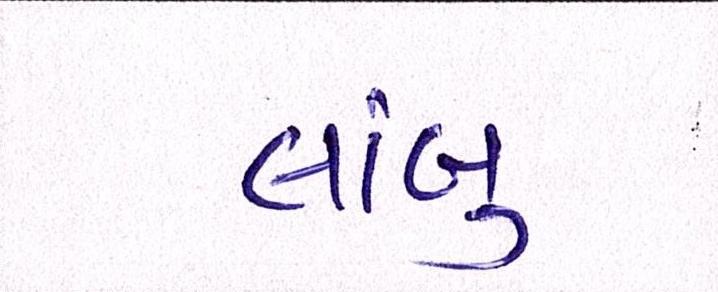 લાંબુ